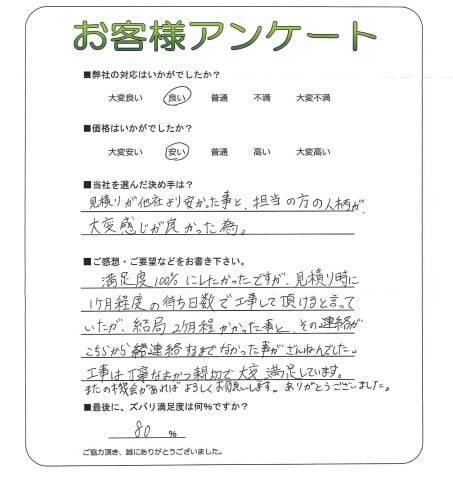 お客様アンケート
■弊社の対応はいかがでしたか？
大変良い 良い 普通 不満 大変不満
■価格はいかがでしたか？
大変安い 安い 普通 高い 大変高い
■当社を選んだ決め手は？
見積りが他社より安かった事と、担当の方の人柄が、
大変感じが良かった為。
■ご感想・ご要望などをお書き下さい。
満足度100%にしたかったですが、見積り時に
1ヶ月程度の待ち日数で工事して頂けると言って
いたが、結局2ヶ月程かかった事と、その連絡が
こちらから 連絡するまでなかった事がざんねんでした。
工事は丁寧なおかつ親切で大変満足しています。
またの機会があればよろしくお願いします。ありがとうございました。
■最後に、ズバリ満足度は何%ですか？
80 %
ご協力頂き、誠にありがとうございました。